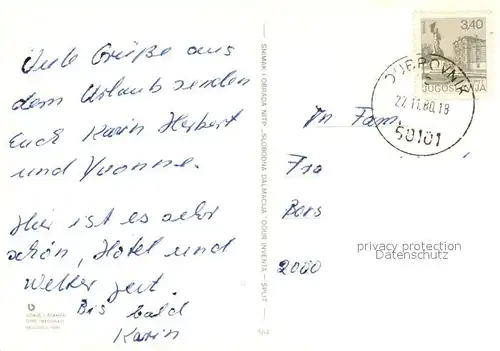 Viele Grüße aus
dem Urlaub senden
Euch Karin Herbert
und Yvonne.
Hier ist es sehr
schön, Hotel und
Wetter gut.
Bis bald
Karin
SNIMAK I OBRADA NITP „SLOBODNA DALMACIJA” OOUR INVENTA – SPLIT
3,40
JUGOSLAVIJA
DUBROVNIK
22.11.80.18
50101
Fam.
Fra
Bors
2000
privacy protection
watermark